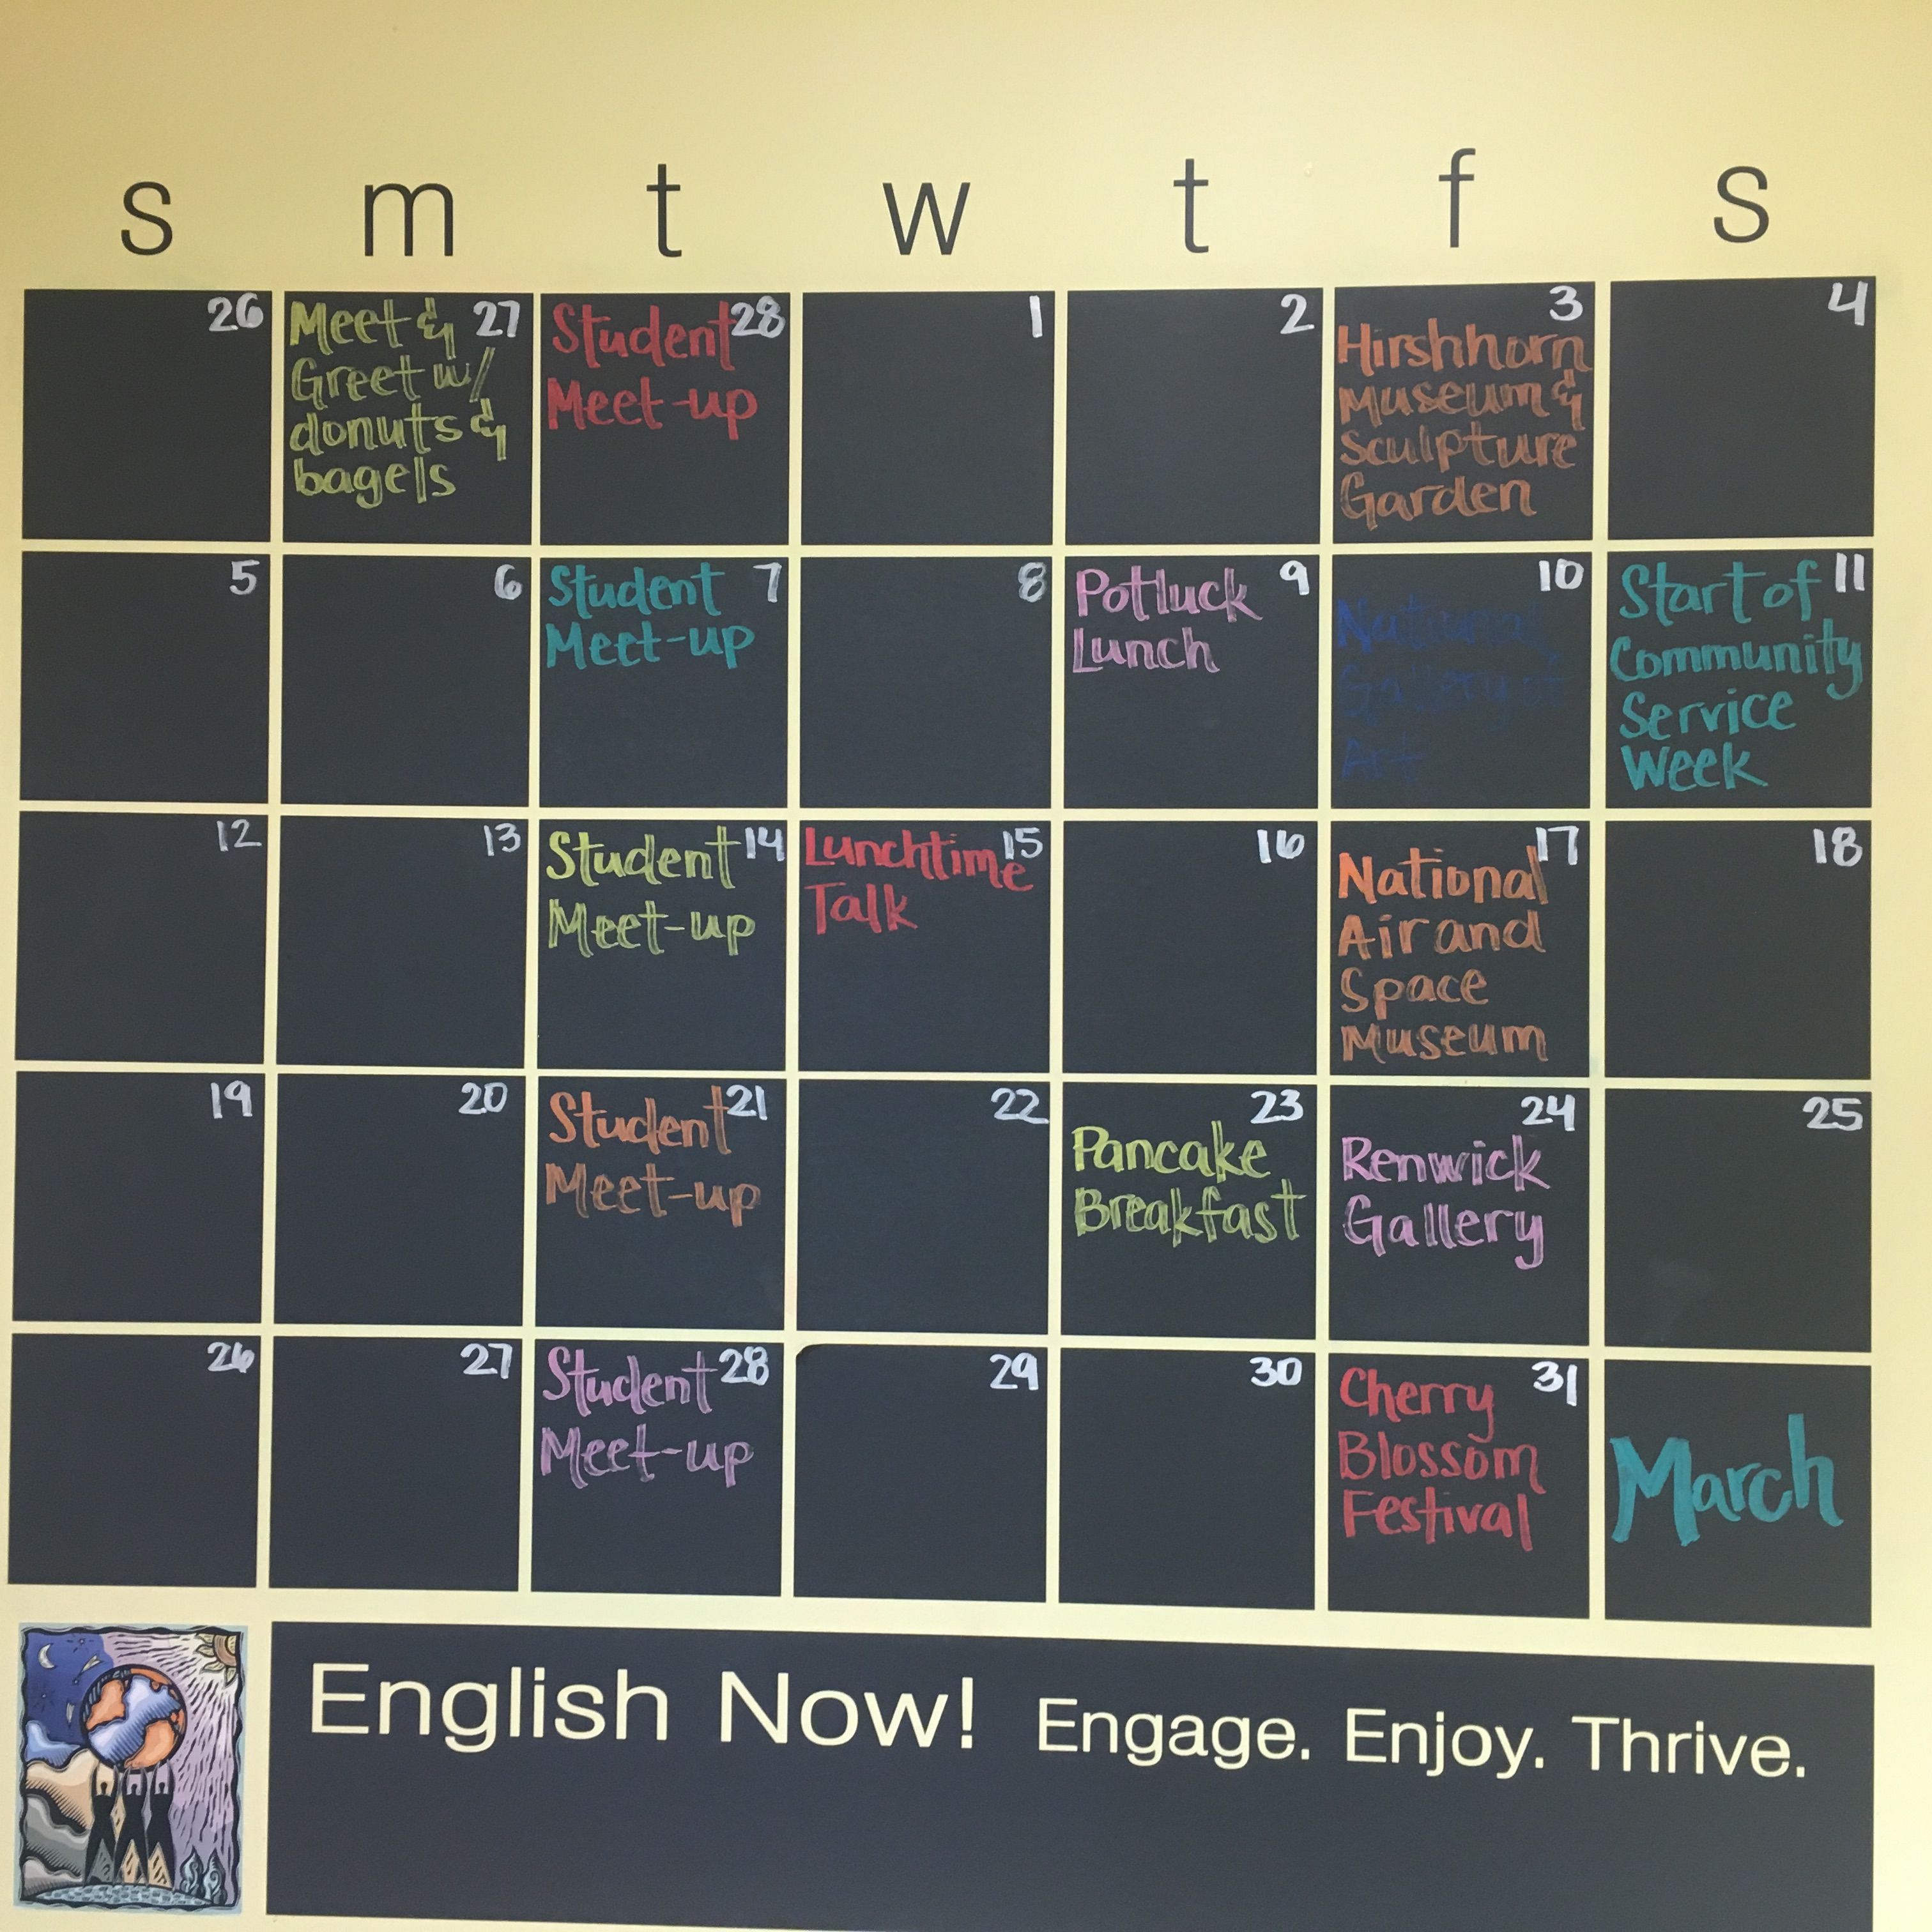 s m t w t f s
26
27
Meet &
Greet w/
donuts &
bagels
28
Student
Meet-up
1
2
3
Hirshhorn
Museum &
Sculpture
Garden
4
5
6
7
Student
Meet-up
8
9
Potluck
Lunch
10
National
Gallery of
Art
11
Start of
Community
Service
Week
12
13
14
Student
Meet-up
15
Lunchtime
Talk
16
17
National
Air and
Space
Museum
18
19
20
21
Student
Meet-up
22
23
Pancake
Breakfast
24
Renwick
Gallery
25
26
27
28
Student
Meet-up
29
30
31
Cherry
Blossom
Festival
March
English Now! Engage. Enjoy. Thrive.